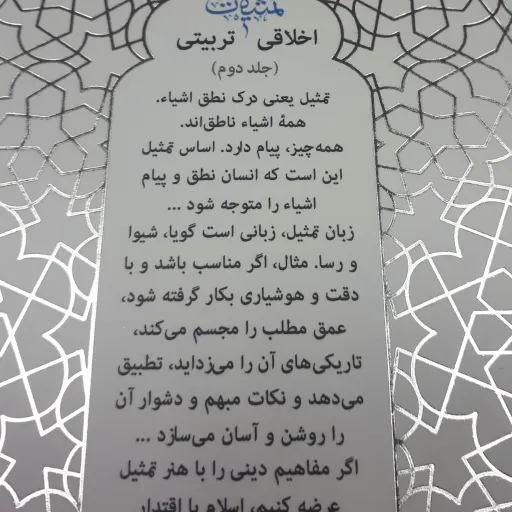 تمثیلات
اخلاقی تربیتی
(جلد دوم)
تمثیل یعنی درک نطق اشیاء.
همهٔ اشیاء ناطق‌اند.
همه‌چیز، پیام دارد. اساس تمثیل
این است که انسان نطق و پیام
اشیاء را متوجه شود ...
زبان تمثیل، زبانی است گویا، شیوا
و رسا. مثال، اگر مناسب باشد و با
دقت و هوشیاری بکار گرفته شود،
عمق مطلب را مجسم می‌کند،
تاریکی‌های آن را می‌زداید، تطبیق
می‌دهد و نکات مبهم و دشوار آن
را روشن و آسان می‌سازد ...
اگر مفاهیم دینی را با هنر تمثیل
عرضه کنیم، اسلام با اقتدار